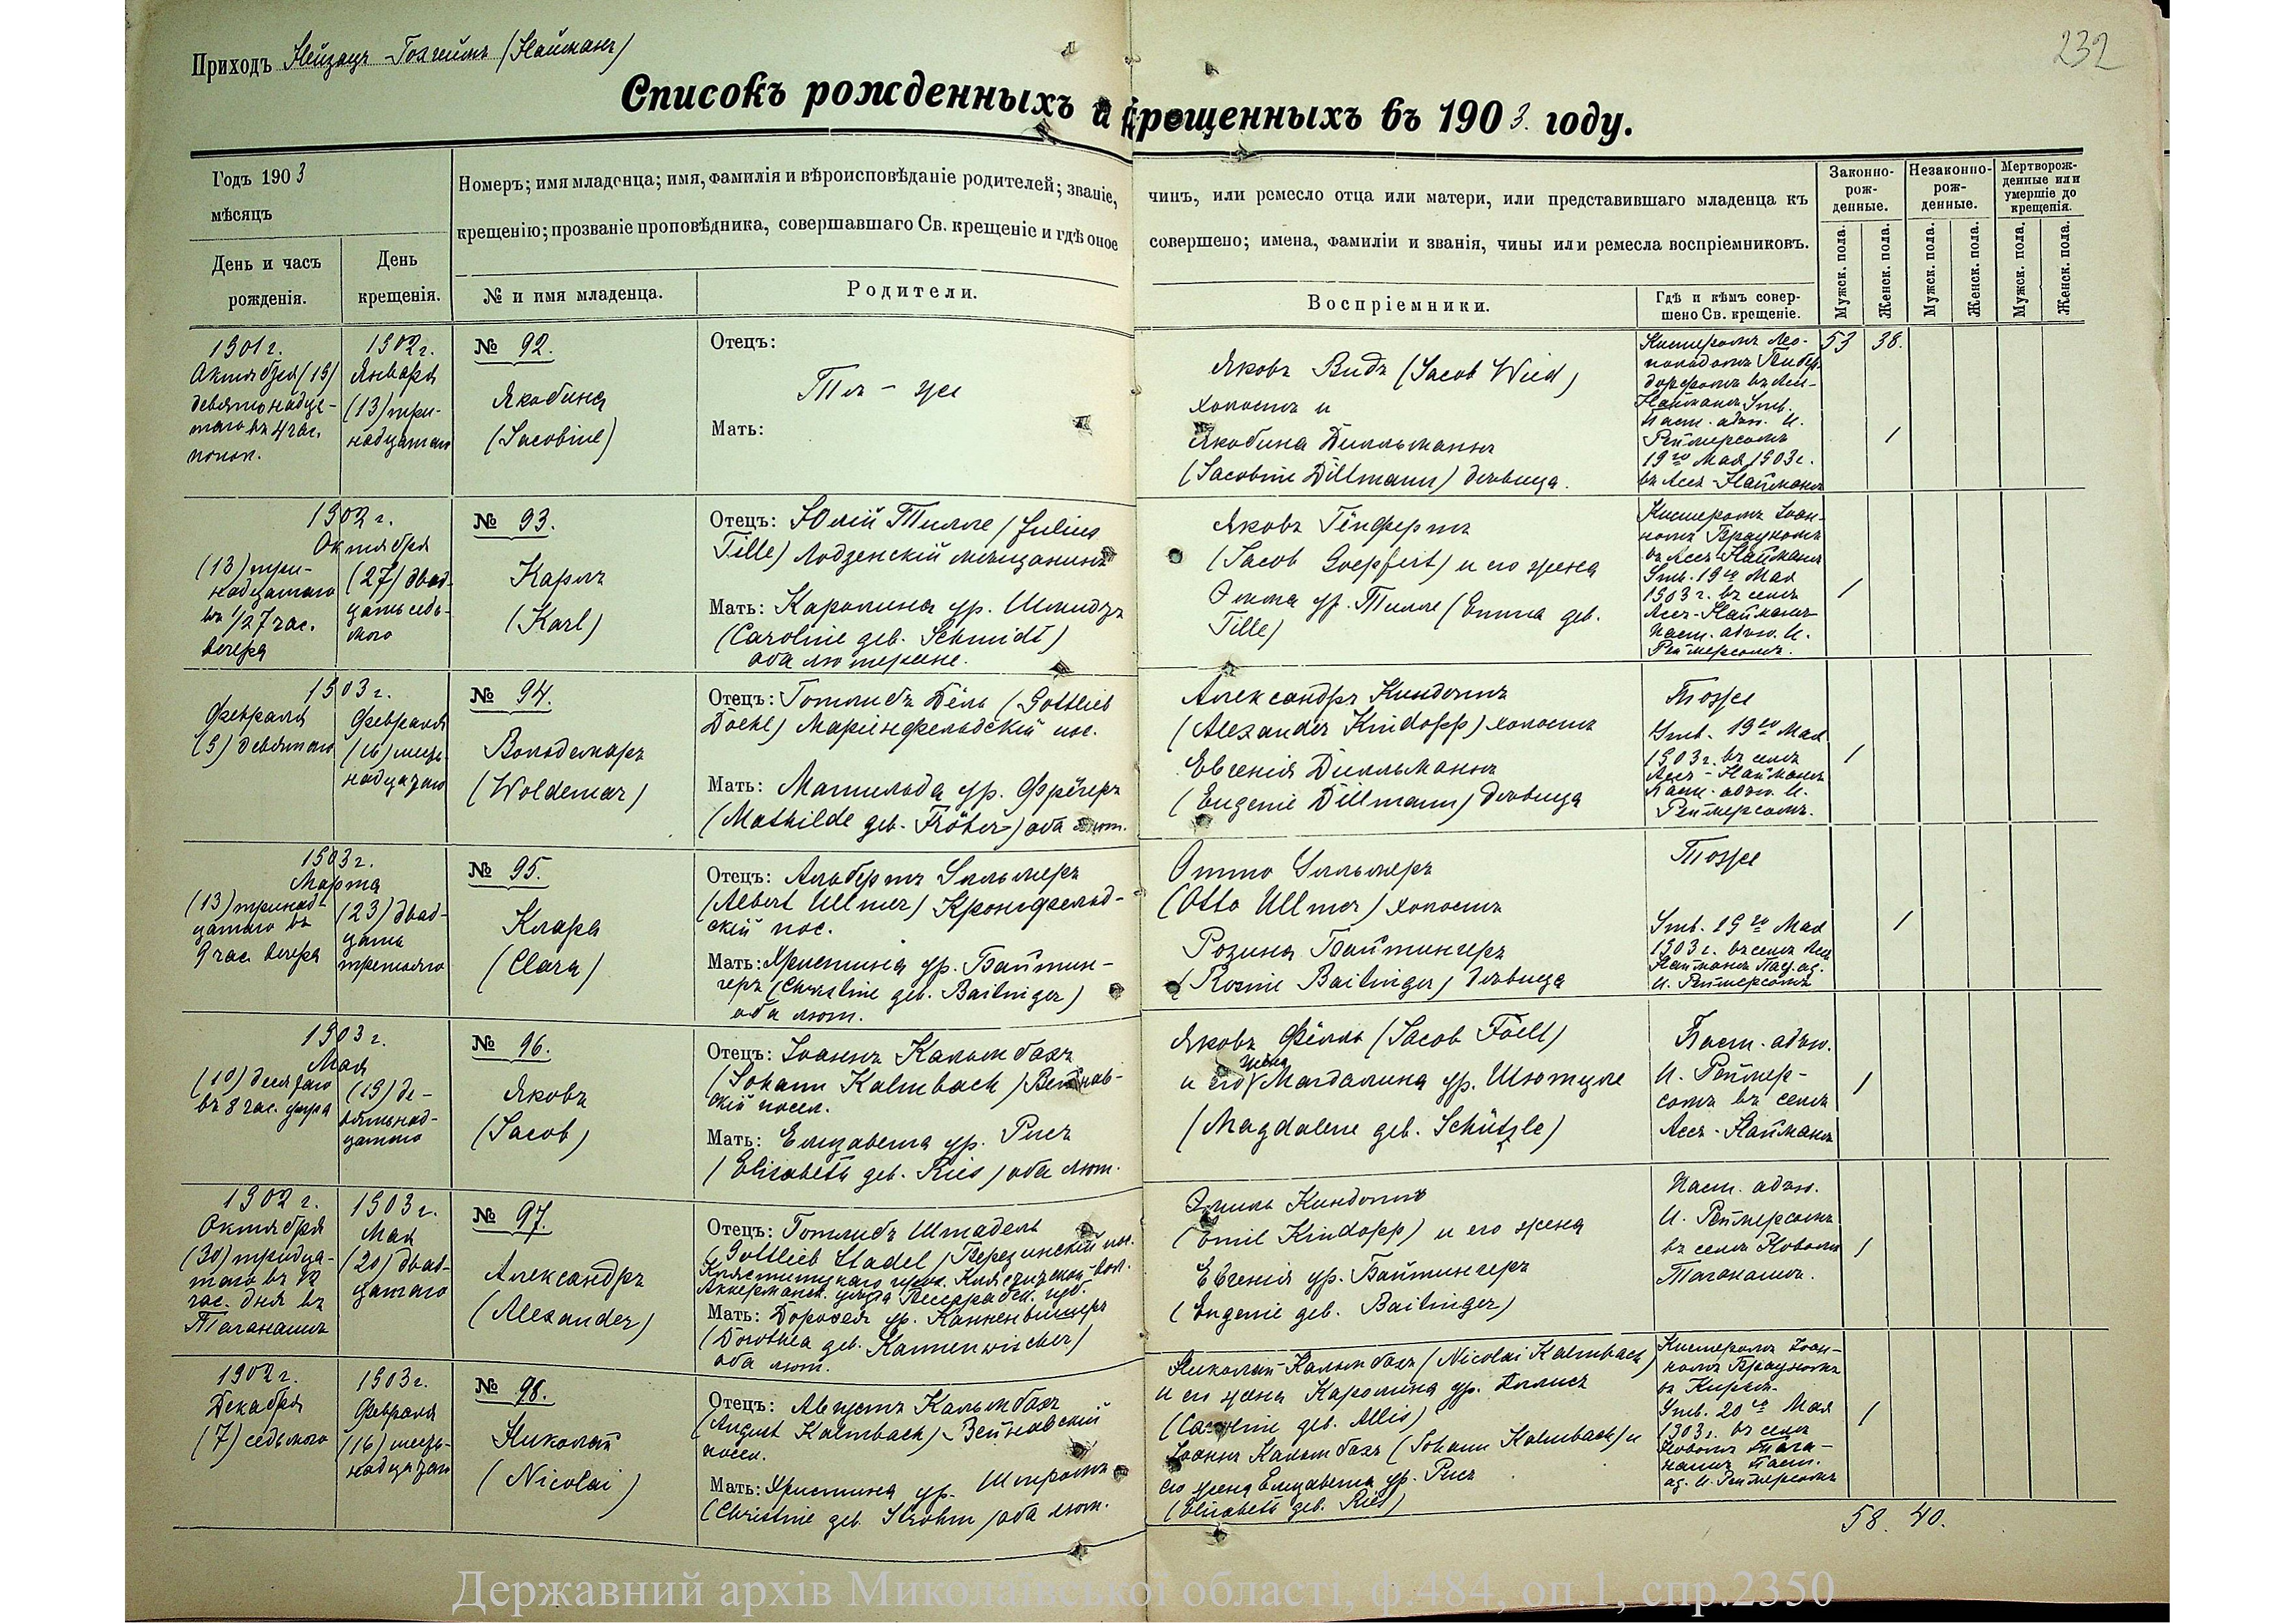 Приходъ Нейзацъ-Гохгеймъ (Найманъ)
232
Списокъ рожденныхъ и крещенныхъ въ 1903 году.
Годъ 1903
мѣсяцъ
День и часъ
рожденія.
День
крещенія.
Номеръ; имя младенца; имя, фамилія и вѣроисповѣданіе родителей; званіе,
крещенію; прозваніе проповѣдника, совершавшаго Св. крещеніе и гдѣ оное
№ и имя младенца.
Родители.
чинъ, или ремесло отца или матери, или представившаго младенца къ
совершено; имена, фамиліи и званія, чины или ремесла воспріемниковъ.
Воспріемники.
Гдѣ и кѣмъ совер-
шено Св. крещеніе.
Законно-
рож-
денные.
Незаконно-
рож-
денные.
Мертворож-
денные или
умершіе до
крещенія.
Мужск. пола.
Женск. пола.
Мужск. пола.
Женск. пола.
Мужск. пола.
Женск. пола.
1901 г.
Октября (19)
девятонадца-
таго въ 4 час.
попол.
1902 г.
Января
(13) три-
надцатаго
№ 92.
Якобина
(Jacobine)
Отецъ:
Тѣ - же
Мать:
Яковъ Видъ (Jacob Wied)
холостъ и
Якобина Дилльманъ
(Jacobine Dillmann) девица.
Кистеромъ Лео-
польдомъ
въ Асс-
Найманъ Утв.
Паст. адъю. И.
Реймерсомъ
19го Мая 1903 г.
въ Ассъ-Найманъ
53 38.
1
1902 г.
Октября
(13) три-
надцатаго
въ 1/27 час.
вечера
(27) двад-
цать седь-
мого
№ 93.
Карлъ
(Karl)
Отецъ: Юлій Тилле (Julius
Tille) Лодзенскій мѣщанинъ
Мать: Каролина ур. Шмидтъ
(Caroline geb. Schmidt)
оба лютеране.
Яковъ Гёпфертъ
(Jacob Goepfert) и его жена
Эмма ур. Тилле (Emma geb.
Tille)
Кистеромъ Іоан-
номъ Брауномъ
въ Ассъ-Найманъ
Утв. 19го Мая
1903 г. въ селѣ
Ассъ-Найманъ
Паст. адъю. И.
Реймерсомъ.
1
1903 г.
Февраля
(9) девятаго
Февраля
(16) шест-
надцатаго
№ 94.
Вольдемаръ
(Woldemar)
Отецъ: Готлибъ Дёль (Gottlieb
Doehl) Маріенфельдскій пос.
Мать: Матильда ур. Фрётеръ
(Mathilde geb. Fröter) оба лют.
Александръ Киндоппъ
(Alexander Kindopp) холостъ
Евгенія Дилльманъ
(Eugenie Dillmann) девица
Тоже
Утв. 19го Мая
1903 г. въ селѣ
Ассъ-Найманъ
Паст. адъю. И.
Реймерсомъ.
1
1903 г.
Марта
(13) тринад-
цатаго въ
9 час. вечера
(23) двад-
цать
третьяго
№ 95.
Клара
(Clara)
Отецъ: Альбертъ Улльмеръ
(Albert Ullmer) Кронсфельд-
скій пос.
Мать: Христина ур. Байтин-
геръ (Christine geb. Baitinger)
оба лют.
Отто Улльмеръ
(Otto Ullmer) холостъ
Розина Байтингеръ
(Rosine Baitinger) девица
Тоже
Утв. 19го Мая
1903 г. въ селѣ Ассъ
Найманъ Паст. ад.
И. Реймерсомъ
1
1903 г.
Мая
(10) десятаго
въ 8 час. утра
(19) де-
вятьнад-
цатаго
№ 96.
Яковъ
(Jacob)
Отецъ: Іоаннъ Кальмбахъ
(Johann Kalmbach) Вейнав-
скій посел.
Мать: Елизавета ур. Рисъ
(Elisabeth geb. Ries) оба лют.
Яковъ Фёлль (Jacob Föell)
и его жена Магдалина ур. Шютцле
(Magdalene geb. Schützle)
Паст. адъю.
И. Реймер-
сомъ въ селѣ
Ассъ-Найманъ
1
1902 г.
Октября
(30) тридца-
таго въ 12
час. дня въ
Таганашѣ
1903 г.
Мая
(20) двад-
цатаго
№ 97.
Александръ
(Alexander)
Отецъ: Готлибъ Штадель
(Gottlieb Stadel) Березинскій пос.
Аккерманск. уѣзда Бессарабск. губ.
Мать: Доротея ур. Канненвишеръ
(Dorothea geb. Kannenwischer)
оба лют.
Эмиль Киндоппъ
(Emil Kindopp) и его жена
Евгенія ур. Байтингеръ
(Eugenie geb. Baitinger)
Паст. адъю.
И. Реймерсомъ
въ селѣ Новомъ
Таганашѣ.
1
1902 г.
Декабря
(7) седьмого
1903 г.
Февраля
(16) шест-
надцатаго
№ 98.
Николай
(Nicolai)
Отецъ: Августъ Кальмбахъ
(August Kalmbach) Вейнавскій
посел.
Мать: Христина ур. Штромъ
(Christine geb. Strohm) оба лют.
Николай Кальмбахъ (Nicolai Kalmbach)
и его жена Каролина ур. Аллисъ
(Caroline geb. Allis)
Іоаннъ Кальмбахъ (Johann Kalmbach) и
его жена Елизавета ур. Рисъ
(Elisabeth geb. Ries)
Кистеромъ Іоан-
номъ Брауномъ
Утв. 20го Мая
1903 г. въ селѣ
Новомъ Тага-
нашѣ Паст.
ад. И. Реймерсомъ
1
58. 40.
Державний архів Миколаївської області, ф.484, оп.1, спр.2350